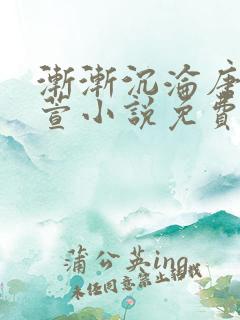 漸漸沉淪唐
萱小說免費
蒲公英ing
未任同意禁止轉載